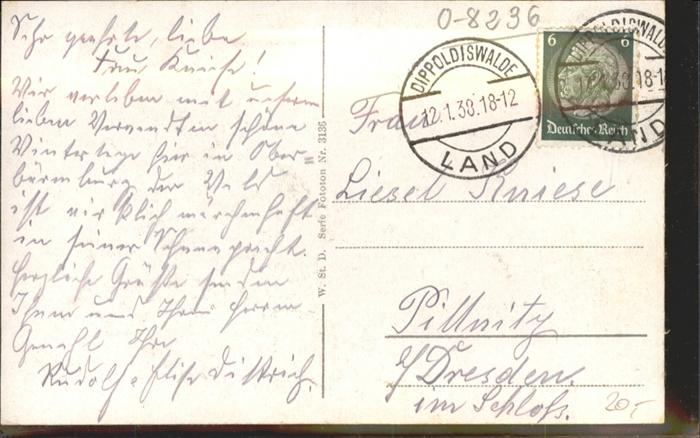 Sehr geehrte, liebe
Frau Kniese!
Wir verleben mit unseren
lieben Verwandten schöne
Wintertage hier in Ober
bärenburg der Wald
ist wirklich märchenhaft
in seiner Schneepracht.
Herzliche Grüße senden
Ihnen und Ihrem Herrn
Gemahl Ihre
Rudolf u Elise Dittrich.
W. St. D. Serie Fototon Nr. 3136
0-8236
DIPPOLDISWALDE
12.1.38.18-12
LAND
6 6
Deutsches Reich
DIPPOLDISWALDE
LAND
Frau
Liesel Kniese
Pillnitz
b/Dresden.
im Schloß.
20,-